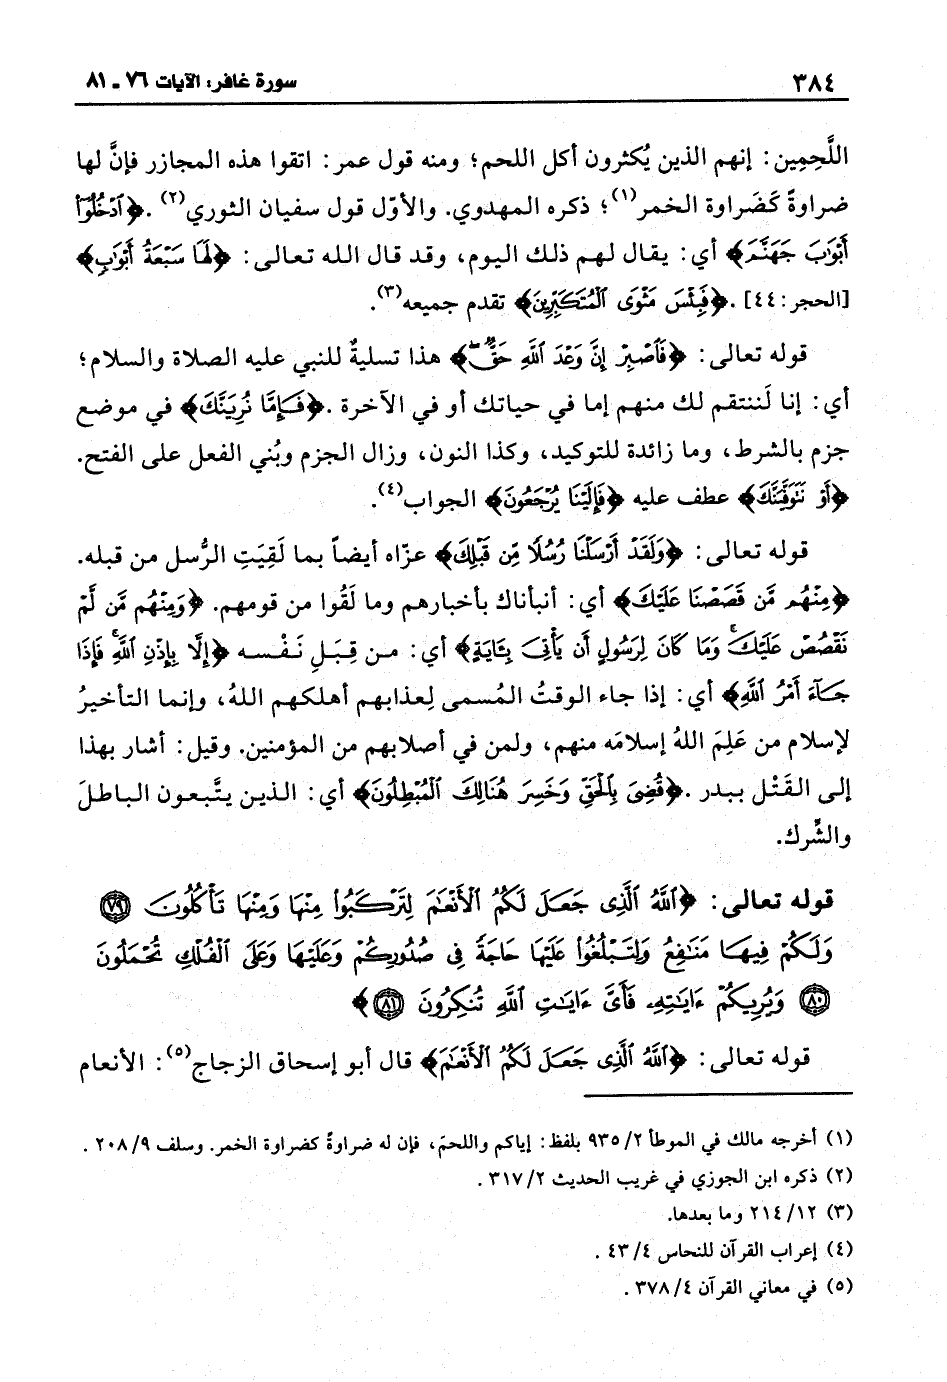 ٣٨٤
سورة غافر: الآيات ٧٦ ـ ٨١
اللَّحِمِين: إنهم الذين يُكثرون أكل اللحم؛ ومنه قول عمر: اتقوا هذه المجازر فإنَّ لها
ضراوةً كَضَراوة الخمر(١)؛ ذكره المهدوي. والأوّل قول سفيان الثوري(٢). ﴿ٱدۡخُلُوٓاْ
أَبۡوَٰبَ جَهَنَّمَ﴾ أي: يقال لهم ذلك اليوم، وقد قال الله تعالى: ﴿لَهَا سَبۡعَةُ أَبۡوَٰبٖ﴾
[الحجر: ٤٤]. ﴿فَبِئۡسَ مَثۡوَى ٱلۡمُتَكَبِّرِينَ﴾ تقدم جميعه(٣).
قوله تعالى: ﴿فَٱصۡبِرۡ إِنَّ وَعۡدَ ٱللَّهِ حَقّٞۚ﴾ هذا تسليةٌ للنبي عليه الصلاة والسلام؛
أي: إنا لَننتقم لك منهم إما في حياتك أو في الآخرة. ﴿فَإِمَّا نُرِيَنَّكَ﴾ في موضع
جزم بالشرط، وما زائدة للتوكيد، وكذا النون، وزال الجزم وبُني الفعل على الفتح.
﴿أَوۡ نَتَوَفَّيَنَّكَ﴾ عطف عليه ﴿فَإِلَيۡنَا يُرۡجَعُونَ﴾ الجواب(٤).
قوله تعالى: ﴿وَلَقَدۡ أَرۡسَلۡنَا رُسُلٗا مِّن قَبۡلِكَ﴾ عزّاه أيضاً بما لَقِيَتِ الرُّسل من قبله.
﴿مِنۡهُم مَّن قَصَصۡنَا عَلَيۡكَ﴾ أي: أنبأناك بأخبارهم وما لَقُوا من قومهم. ﴿وَمِنۡهُم مَّن لَّمۡ
نَقۡصُصۡ عَلَيۡكَۗ وَمَا كَانَ لِرَسُولٍ أَن يَأۡتِيَ بِـَٔايَةٍ﴾ أي: من قِبَلِ نَفْسه ﴿إِلَّا بِإِذۡنِ ٱللَّهِۚ فَإِذَا
جَآءَ أَمۡرُ ٱللَّهِ﴾ أي: إذا جاء الوقتُ المُسمى لِعذابهم أهلكهم اللهُ، وإنما التأخيرُ
لإسلام من عَلِمَ اللهُ إسلامَه منهم، ولمن في أصلابهم من المؤمنين. وقيل: أشار بهذا
إلى القَتْل ببدر. ﴿قُضِيَ بِٱلۡحَقِّ وَخَسِرَ هُنَالِكَ ٱلۡمُبۡطِلُونَ﴾ أي: الذين يتَّبعون الباطلَ
والشِّرك.
قوله تعالى: ﴿ٱللَّهُ ٱلَّذِي جَعَلَ لَكُمُ ٱلۡأَنۡعَٰمَ لِتَرۡكَبُواْ مِنۡهَا وَمِنۡهَا تَأۡكُلُونَ ٧٩
وَلَكُمۡ فِيهَا مَنَٰفِعُ وَلِتَبۡلُغُواْ عَلَيۡهَا حَاجَةٗ فِي صُدُورِكُمۡ وَعَلَيۡهَا وَعَلَى ٱلۡفُلۡكِ تُحۡمَلُونَ
٨٠ وَيُرِيكُمۡ ءَايَٰتِهِۦ فَأَيَّ ءَايَٰتِ ٱللَّهِ تُنكِرُونَ ٨١﴾
قوله تعالى: ﴿ٱللَّهُ ٱلَّذِي جَعَلَ لَكُمُ ٱلۡأَنۡعَٰمَ﴾ قال أبو إسحاق الزجاج(٥): الأنعام
(١) أخرجه مالك في الموطأ ٩٣٥/٢ بلفظ: إياكم واللحمَ، فإن له ضراوةً كضراوة الخمر. وسلف ٢٠٨/٩.
(٢) ذكره ابن الجوزي في غريب الحديث ٣١٧/٢.
(٣) ٢١٤/١٢ وما بعدها.
(٤) إعراب القرآن للنحاس ٤٣/٤.
(٥) في معاني القرآن ٣٧٨/٤.